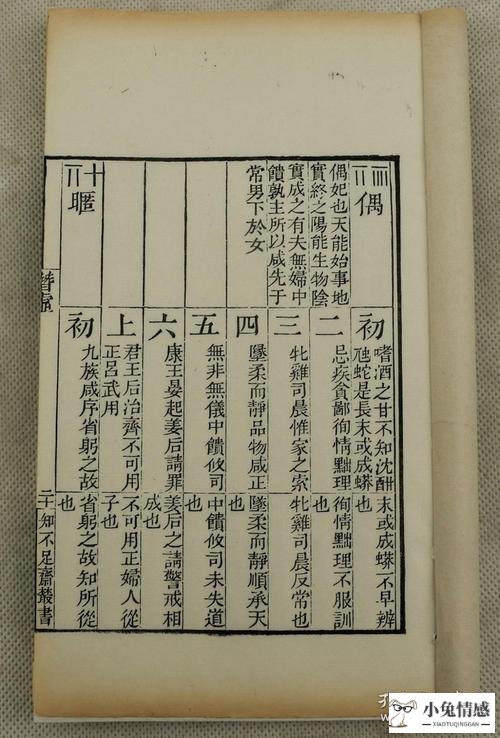 偶
偶妃也天能始事地
實終之陽能生物陰
實成之有夫無婦中
饋孰主所以咸先于
常男下於女
初
嗜酒之甘不知沈酣
虺蛇是長末或成蟒
末或成蟒不早辨
也
二
忌疾貪鄙徇情黜理
徇情黜理不服訓
也
三
牝雞司晨惟家之索
牝雞司晨反常也
四
墬柔而靜品物咸正
墬柔而靜順承天
也
五
無非無儀中饋攸司
中饋攸司未失道
也
六
康王晏起姜后請罪
姜后之請警戒相
成也
上
君王后治齊不可用
正呂武用
不可用正婦人從
子也
十
暱
初
九族咸序省躬之故
省躬之故知所從
也
潛虛
二十
知不足齋叢書
小兔情感
XIAOTUQINGGAN